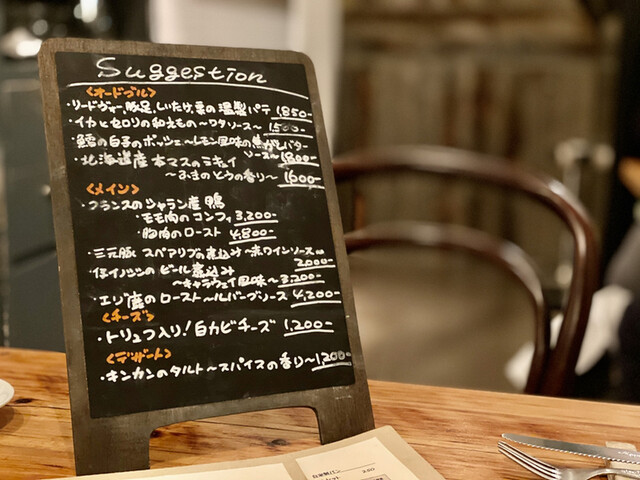 Suggestion
<オードブル>
・リードヴォー、豚足、しいたけ、栗の温製パテ 1,850-
・イカとセロリの和えもの〜ワタソース〜 1,500-
・鱈の白子のポッシェ〜レモン風味の焦がしバター
ソース〜 1,800-
・北海道産本マスのミキュイ
〜ふきのとうの香り〜 1,600-
<メイン>
・フランスのシャラン産鴨
・モモ肉のコンフィ 3,200-
・胸肉のロースト 4,800-
・三元豚スペアリブの煮込み〜赤ワインソース〜
2,000-
・イノシシのビール煮込み
〜キャラウェイ風味〜 3,200-
・エゾ鹿のロースト〜ルバーブソース 4,200-
<チーズ>
・トリュフ入り!白カビチーズ 1,200-
<デザート>
・キンカンのタルト〜スパイスの香り〜 1,200-
自家製パン 350